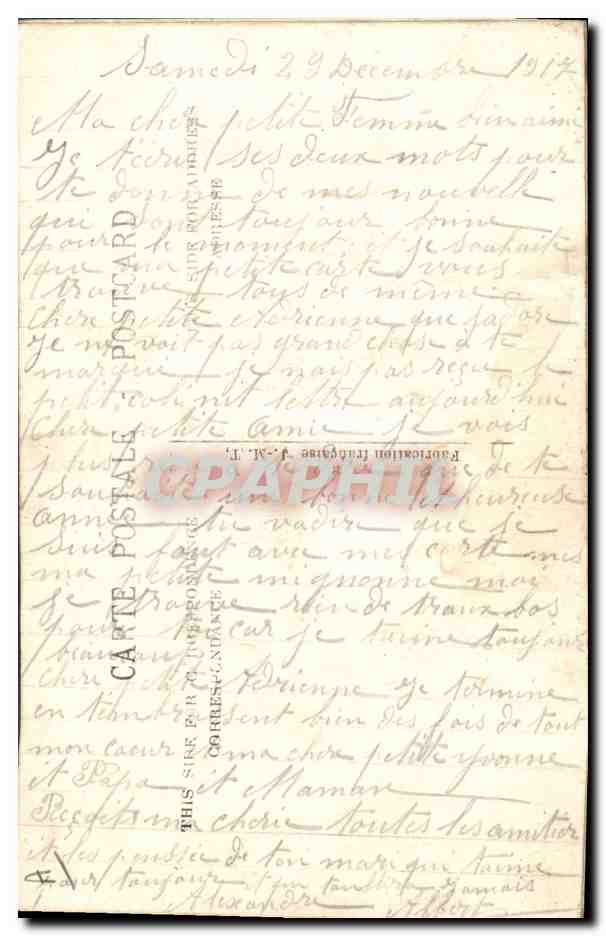 Samedi 29 Decembre 1917
Ma cher petite Femme bien aimé
Je t'écris ses deux mots pour
te donné de mes nouvelle
qui sont toujour bonne
pour le moment et je souhaite
que ma petite carte vous
trouve tous de même
Chere petite Adrienne que j'adore
Je ne voit pas grand chose a te
marqué je nais pas reçu le
petit coli nit lettre aujourd'hui
Cher petite amie je vois
plus rien que de te
souhaiter un bonne et heureuse
anné tu vadire que je
suis fout avec mes carte mes
ma petite mignonne moi
je trouve rien de traux bos
pour toi car je taime toujour
beaucoup
Chere petite Adrienne je termine
en t'embrassent bien des fois de tout
mon coeur ma cher petite Yvonne
it Papa it Maman
Reçoit ma cherie toutes les amitier
it les pensée de ton mari qui t'aime
pour toujour jamais
Alexandre Albert
CARTE POSTALE - POSTCARD
THIS SIDE FOR CORRESPONDANCE
CORRESPONDANCE
SIDE FOR ADDRESS
ADRESSE
Fabrication française J.-M. T.
CPAPHIL